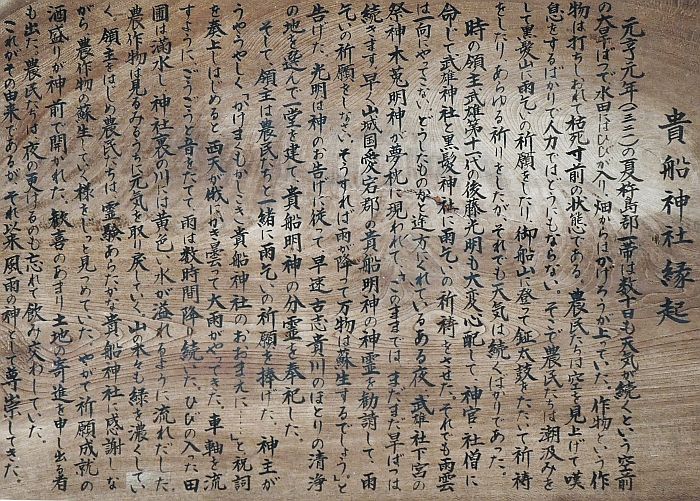 貴船神社縁起
元亨元年(一三二一)の夏杵島郡一帯は数十日も天気が続くという空前
の大旱ばつで水田にはひびが入り、畑からはかげろうが上っていた。作物という作
物は打ちしおれて枯死寸前の状態である。農民たちは空を見上げて嘆
息をするばかりで人力ではどうにもならない。そこで農民たちは潮汲みを
して黒髪山に雨乞いの祈願をしたり、御船山に登って鉦太鼓をたたいて祈祷
をしたり、あらゆる祈りをしたが、それでも天気は続くばかりであった。
時の領主武雄第十一代の後藤光明も大変心配して、神官社僧に
命じて武雄神社と黒髪神社に雨乞いの祈祷をさせた。それでも雨雲
は一向にやってこない。どうしたものかと途方にくれているある夜、武雄社下宮の
祭神木菟明神が夢枕に現われて、「このままでは、まだまだ旱ばつは
続きます。早く山城国愛宕郡の貴船明神の神霊を勧請して、雨
乞いの祈願をしなさい。そうすれば雨が降って万物は蘇生するでしょう」と
告げた。光明は神のお告げに従って早速古志貴川のほとりの清浄
の地を選んで一堂を建て、貴船明神の分霊を奉祀した。
そして、領主は農民たちと一緒に雨乞いの祈願を捧げた。神主が
うやうやしく、「かけまくもかしこき貴船神社のおおまえに……」と祝詞
を奏上しはじめると西天が俄にかき曇って大雨がやってきた。車軸を流
すように、ごうごうと音をたてて、雨は数時間降り続いた。ひびの入った田
圃は満水し、神社裏の川には黄色い水が溢れるように流れだした。
農作物は見るみるうちに元気を取り戻していく、山の木々も緑を濃くしてい
く、領主はじめ農民たちは、霊験あらたかな貴船神社に感謝しな
がら、農作物の蘇生していく様をじっと見つめていた。やがて祈願成就の
酒盛りが神前で開かれた。歓喜のあまり、土地の寄進を申し出る者
も出た。農民たちは、夜の更けるのも忘れて飲み交わしていた。
これがその由来であるが、それ以来風雨の神として尊崇してきた。